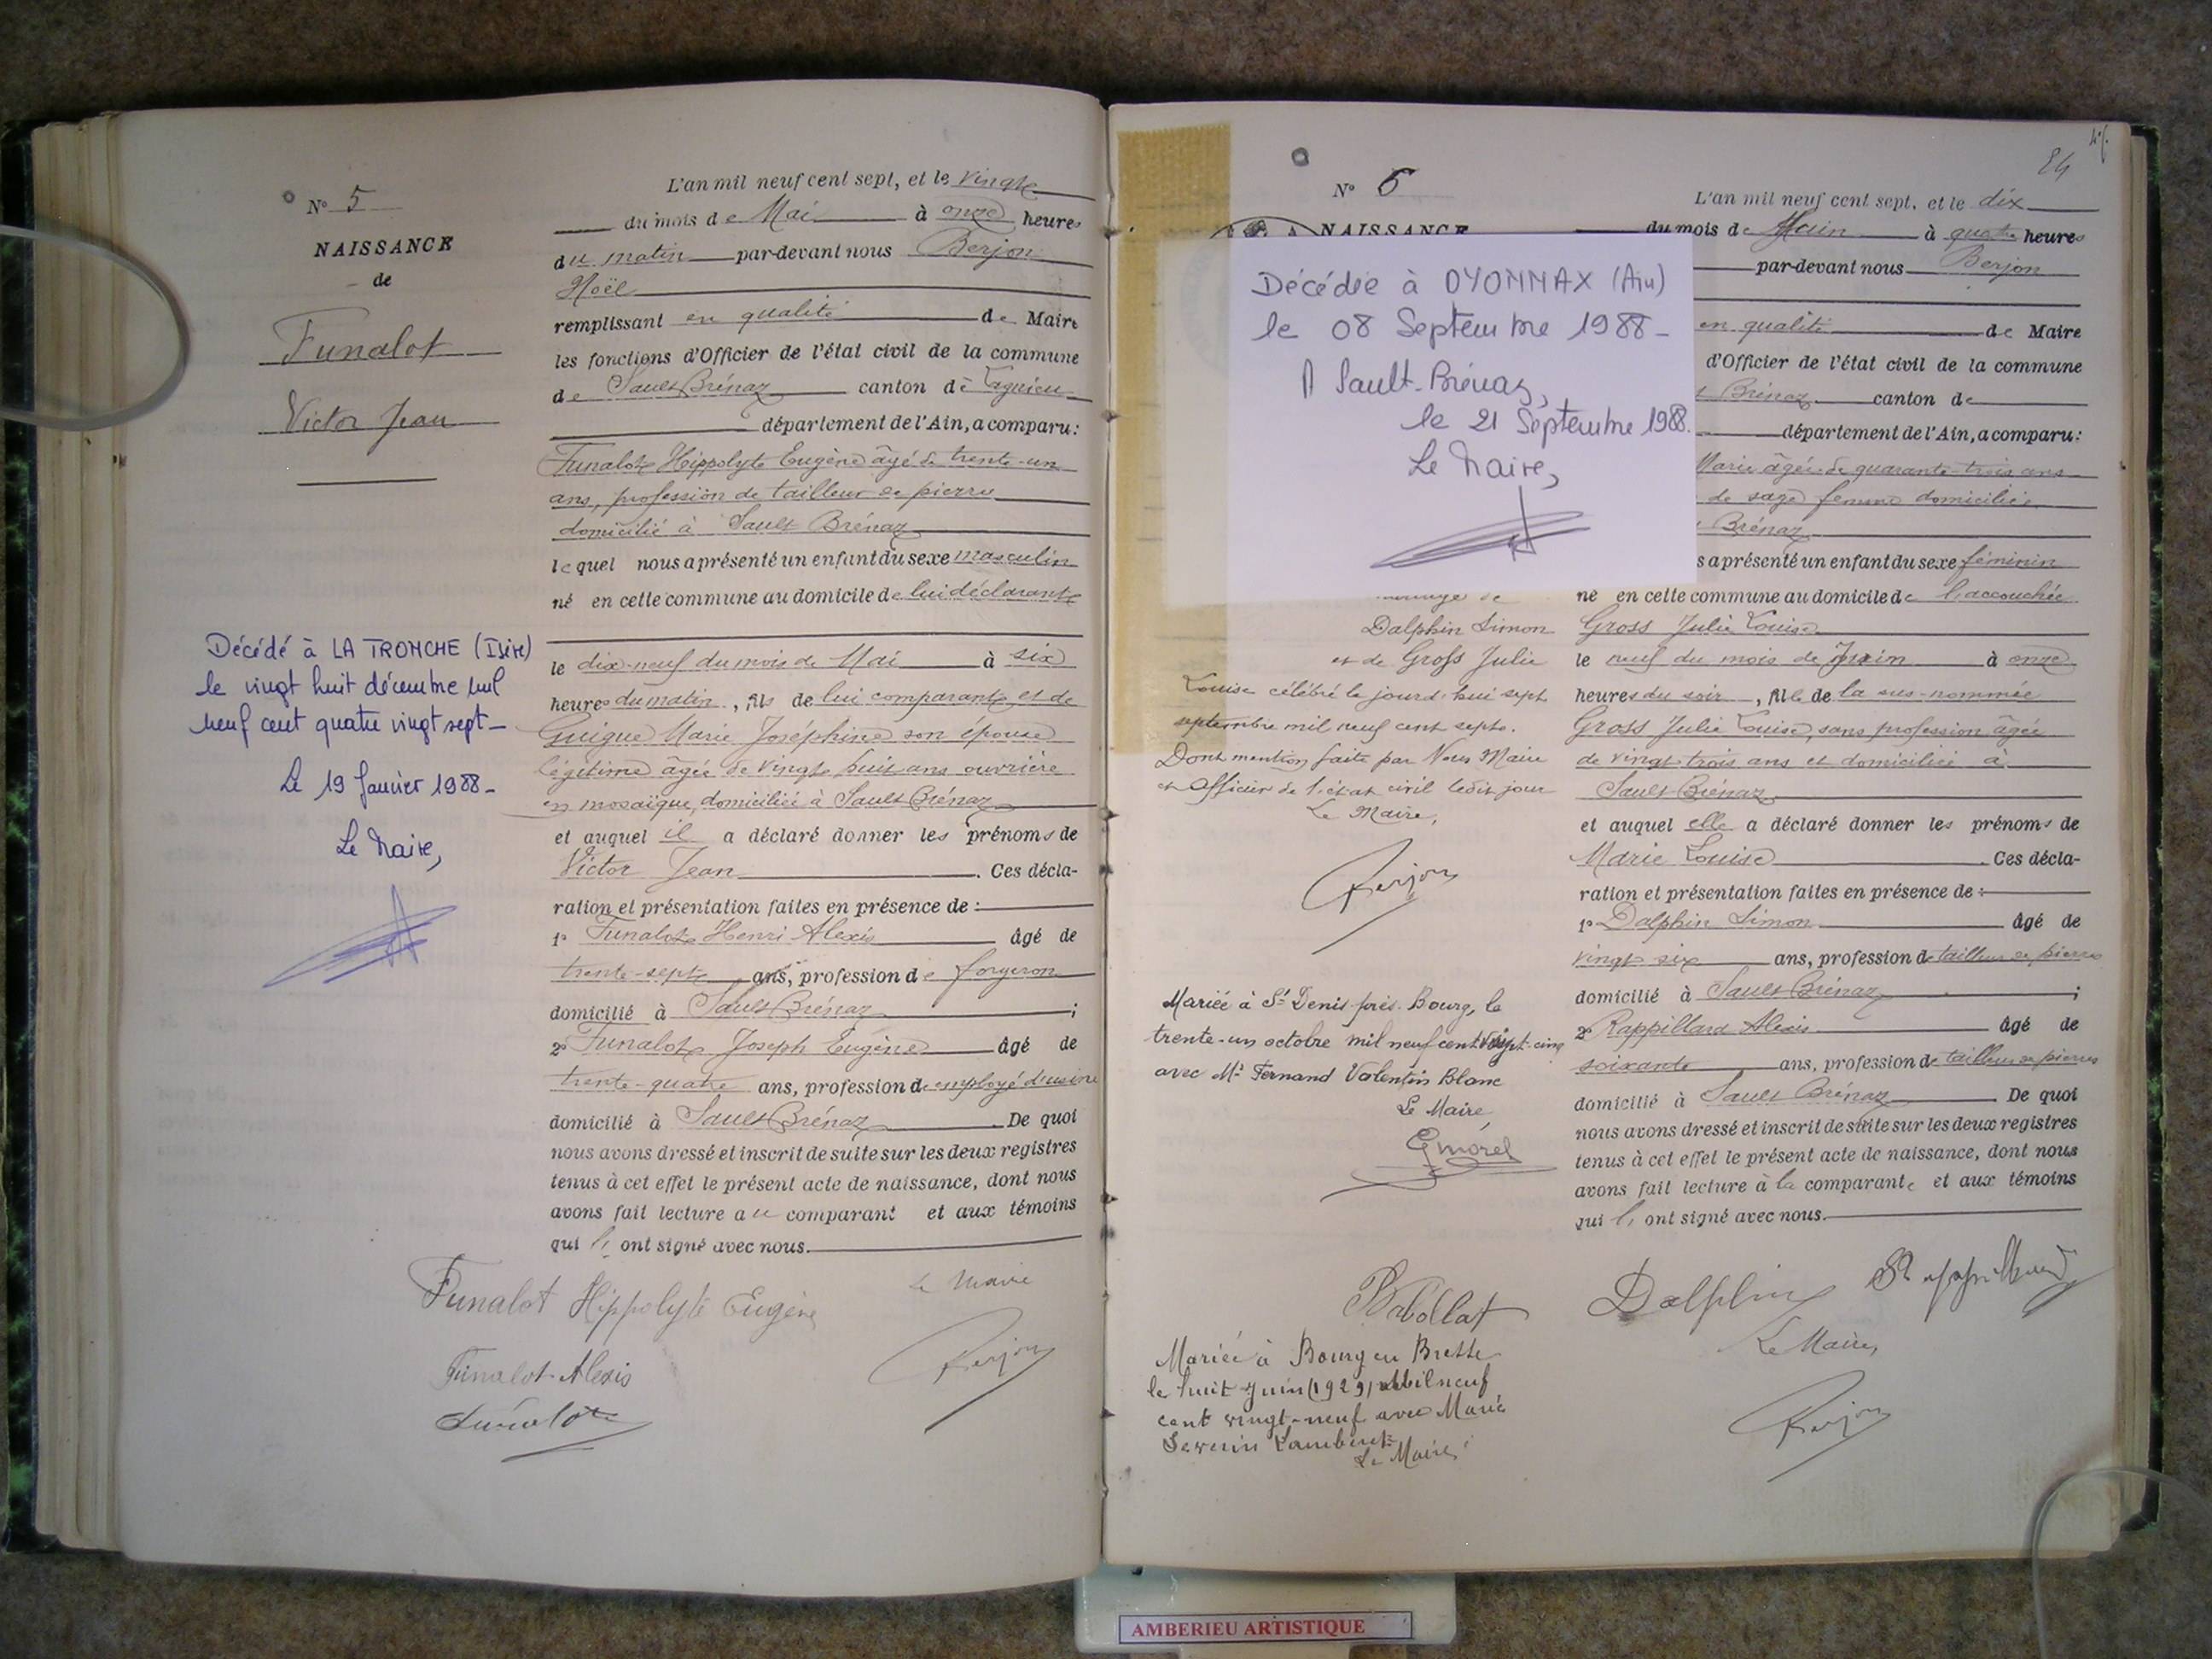 N° 5
NAISSANCE
de
Funalot
Victor Jean
Décédé à LA TRONCHE (Isère)
le vingt huit décembre mil
neuf cent quatre vingt sept -
Le 19 Janvier 1988 -
Le Maire,
L'an mil neuf cent sept, et le vingt
du mois de Mai à onze heures
du matin par-devant nous Berjon
Noël
remplissant en qualité de Maire
les fonctions d'Officier de l'état civil de la commune
de Sault Brénaz canton de Lagnieu
département de l'Ain, a comparu:
Funalot Hippolyte Eugène âgé de trente-un
ans, profession de tailleur de pierre
domicilié à Sault Brénaz
lequel nous a présenté un enfant du sexe masculin
né en cette commune au domicile de lui déclarant
le dix-neuf du mois de Mai à six
heures du matin, fils de lui comparant et de
Guigue Marie Joséphine son épouse
légitime âgée de vingt huit ans ouvrière
en mosaïque, domiciliée à Sault Brénaz
et auquel il a déclaré donner les prénoms de
Victor Jean . Ces décla-
ration et présentation faites en présence de :
1° Funalot Henri Alexis âgé de
trente-sept ans, profession de forgeron
domicilié à Sault Brénaz ;
2° Funalot Joseph Eugène âgé de
trente-quatre ans, profession de employé d'usine
domicilié à Sault Brénaz . De quoi
nous avons dressé et inscrit de suite sur les deux registres
tenus à cet effet le présent acte de naissance, dont nous
avons fait lecture au comparant et aux témoins
qui ont signé avec nous.
Funalot Hippolyte Eugène
Le Maire
Funalot Alexis
Berjon
Funalot
N° 6
NAISSANCE
Décédée à OYONNAX (Ain)
le 08 Septembre 1988 -
A Sault-Brénaz,
le 21 Septembre 1988.
Le Maire,
Dalphin Simon
et de Gross Julie
Louise célébré le jourd'hui sept
septembre mil neuf cent sept.
Dont mention faite par Nous Maire
et Officier de l'état civil ledit jour
Le Maire,
Berjon
Mariée à St Denis près Bourg, le
trente-un octobre mil neuf cent vingt-cinq
avec Mr Fernand Valentin Blanc
Le Maire
Gmorel
Mariée à Bourg en Bresse
le huit Juin (1929) Mil neuf
cent vingt-neuf avec Marie
Severin Lambert
Le Maire
24
L'an mil neuf cent sept, et le dix
du mois de Juin à quatre heures
par-devant nous Berjon
en qualité de Maire
d'Officier de l'état civil de la commune
Brénaz canton de
département de l'Ain, a comparu:
Marie âgée de quarante-trois ans
de sage femme domiciliée
Brénaz
s a présenté un enfant du sexe féminin
né en cette commune au domicile de l'accouchée
Gross Julie Louise
le neuf du mois de Juin à onze
heures du soir, fille de la sus-nommée
Gross Julie Louise, sans profession âgée
de vingt trois ans et domiciliée à
Sault Brénaz
et auquel elle a déclaré donner les prénoms de
Marie Louise . Ces décla-
ration et présentation faites en présence de :
1° Dalphin Simon âgé de
vingt-six ans, profession de tailleur de pierres
domicilié à Sault Brénaz ;
2° Rappillard Alexis âgé de
soixante ans, profession de tailleur de pierres
domicilié à Sault Brénaz . De quoi
nous avons dressé et inscrit de suite sur les deux registres
tenus à cet effet le présent acte de naissance, dont nous
avons fait lecture à la comparante et aux témoins
qui ont signé avec nous.
Babollat
Dalphin
Rappillard
Le Maire,
Berjon
AMBERIEU ARTISTIQUE